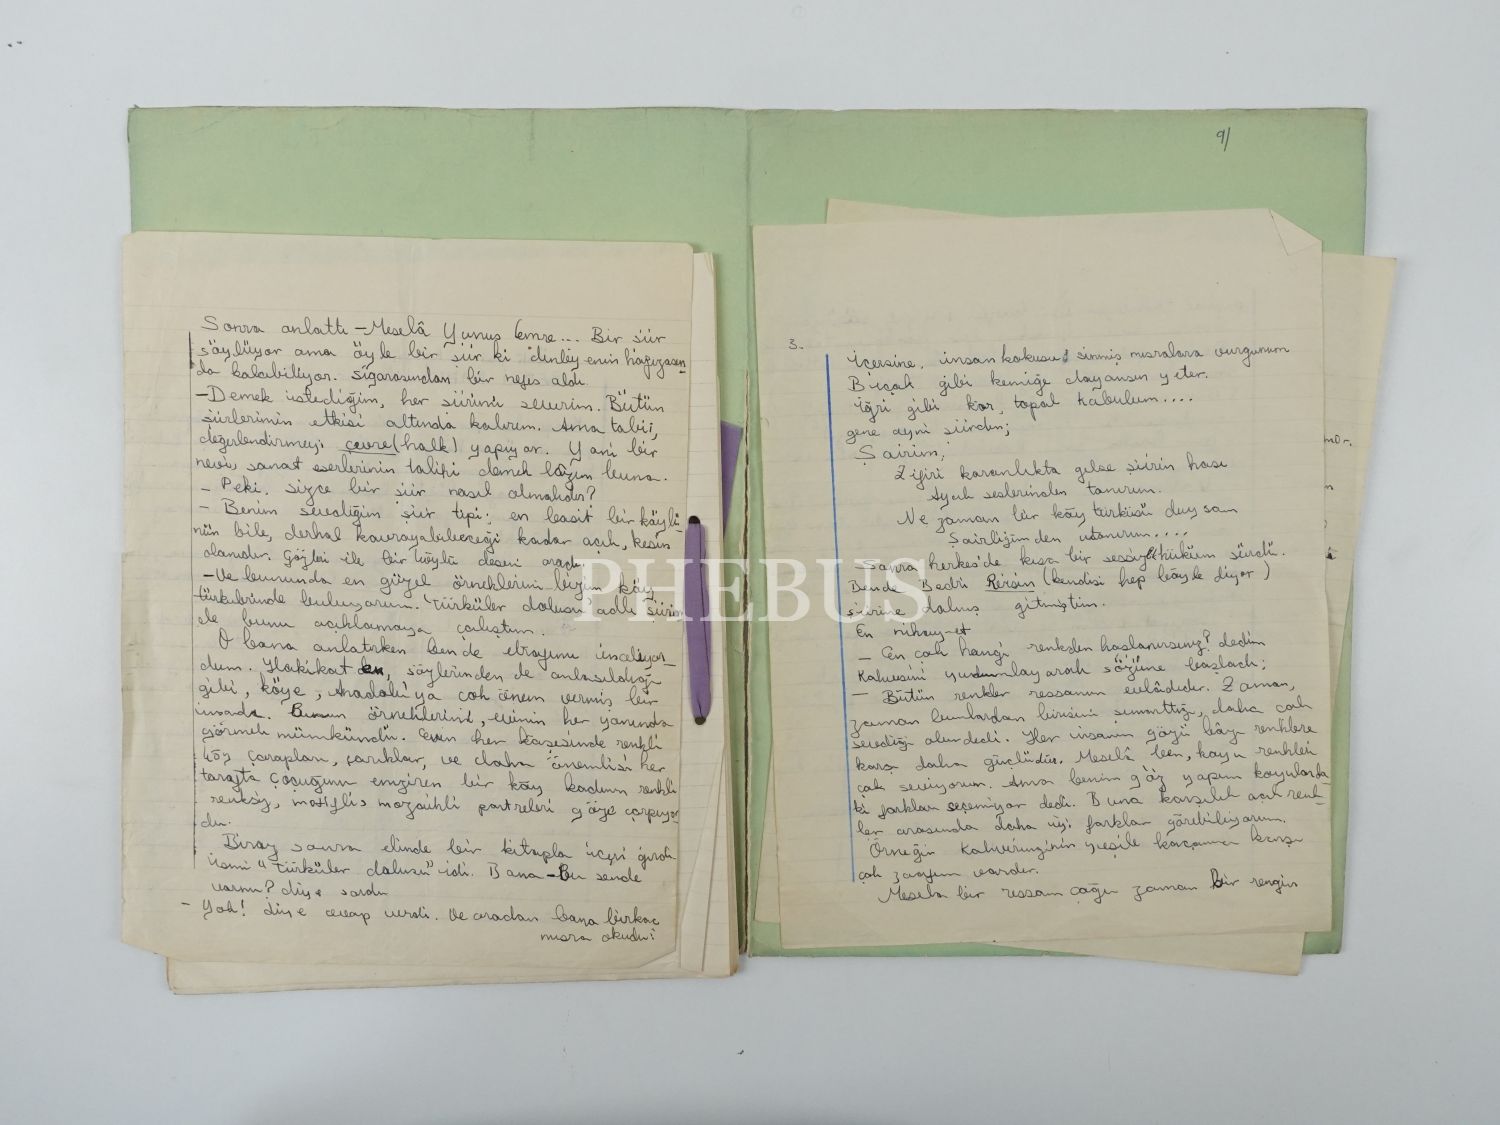 Sonra anlattı – Meselâ Yunus Emre... Bir şiir
söylüyor ama öyle bir şiir ki dinleyenin hafızasın-
da kalabiliyor. Sigarasından bir nefes aldı.
– Demek istediğim, her şiirimi severim. Bütün
şiirlerimin etkisi altında kalırım. Ama tabii,
değerlendirmeyi çevre (halk) yapıyor. Yani bir
nevi, sanat eserlerinin talihi demek lâzım buna.
– Peki, sizce bir şiir nasıl olmalıdır?
– Benim sevdiğim şiir tipi; en basit bir köylü-
nün bile, derhal kavrayabileceği kadar açık, kesin
olanıdır. Gözleri ile bir köylü deseni aradı.
– Ve bununda en güzel örneklerini bizim köy
türkülerinde buluyorum. "Türküler dolusu" adlı şiirim
de bunu açıklamaya çalıştım.
O bana anlatırken bende etrafımı inceliyor-
dum. Hakikaten, söylerinden de anlaşıldığı
gibi, köye, Anadolu'ya çok önem vermiş bir
insandı. Bunun örneklerini, evinin her yanında
görmek mümkündü. Evin her köşesinde renkli
köy çorapları, çarıklar, ve daha önemlisi her
tarafta çocuğunu emziren bir köy kadının renkli
renksiz, motifli, mozaikli portreleri göze çarpıyor
du.
Biraz sonra elinde bir kitapla içeri girdi
ismi "Türküler dolusu" idi. Bana – Bu sende
varmı? diye sordu
– Yok! diye cevap verdi. Ve aradan bana birkaç
mısra okudu:
9/
3.
İçersine, insan kokusu sinmiş mısralara vurgunum
Bıçak gibi kemiğe dayansın yeter.
Eğri gibi kör, topal kabulüm....
gene aynı şiirden;
Şairim,
Zifiri karanlıkta gelse şiirin hası
Ayak seslerinden tanırım.
Ne zaman bir köy türküsü duysam
Şairliğimden utanırım....
Sonra herkes'de kısa bir sessizlik hüküm sürdü.
Bende Bedri Reisin (kendisi hep böyle diyor)
şiirine dalmış gitmiştim.
En nihayet
– En çok hangi renkden hoşlanırsınız? dedim
Kahvesini yudumlayarak sözüne başladı;
– Bütün renkler ressamın evlâdıdır. Zaman,
zaman bunlardan birisini şımarttığı, daha çok
sevdiği olur dedi. Her insanın gözü bâzı renklere
karşı daha güçlüdür. Meselâ ben, koyu renkleri
çok seviyorum. Ama benim göz yapım koyularda
ki farkları seçemiyor dedi. Buna karşılık açık renk-
ler arasında daha iyi farkları görebiliyorum.
Örneğin Kahverenginin yeşile kaçanına karşı
çok zaafım vardır.
Meselâ bir ressam çoğu zaman bir rengin
PHEBUS